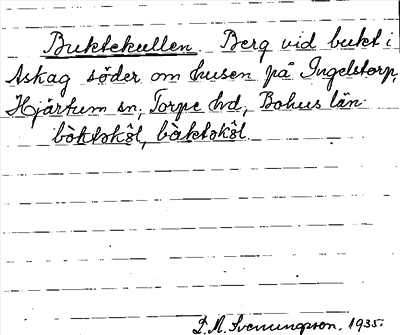 Buktekullen. Berg vid bukt i
Askag söder om husen på Ingelstorp,
Hjärtum sn, Torpe hd, Bohus län.
bòktəkŝl, bàktəkŝl.
1935.